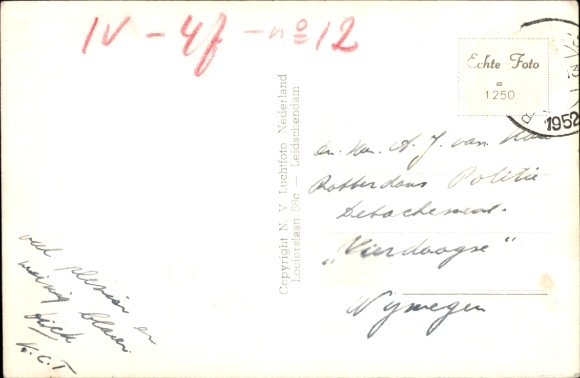 IV - 4f - nº 12
Echte Foto
=
1250
1952
Copyright N. V. Luchtfoto Nederland
Looierslaan — Leidschendam
A. J. van
Rotterdams Politie
Detachement.
„Vierdaagse"
Nymegen
veel plezier en
weinig blaren
K.C.T